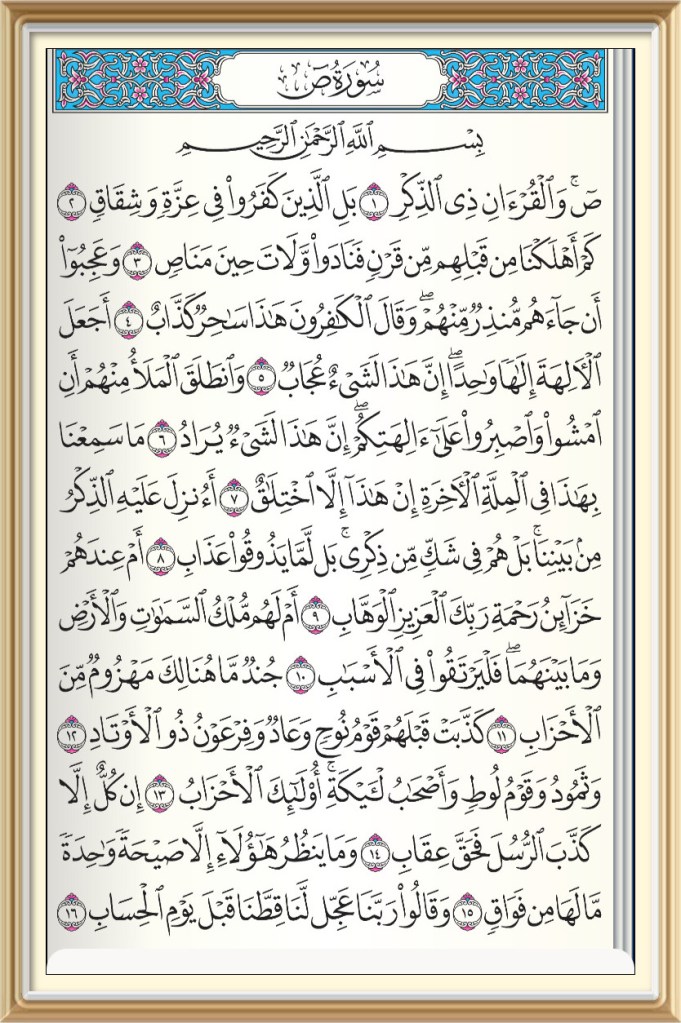 سُورَةُ صٓ
بِسْمِ ٱللَّهِ ٱلرَّحْمَٰنِ ٱلرَّحِيمِ
صٓۚ وَٱلْقُرْءَانِ ذِى ٱلذِّكْرِ ١ بَلِ ٱلَّذِينَ كَفَرُوا۟ فِى عِزَّةٍ وَشِقَاقٍ ٢
كَمْ أَهْلَكْنَا مِن قَبْلِهِم مِّن قَرْنٍ فَنَادَوا۟ وَّلَاتَ حِينَ مَنَاصٍ ٣ وَعَجِبُوٓا۟
أَن جَآءَهُم مُّنذِرٌ مِّنْهُمْۖ وَقَالَ ٱلْكَٰفِرُونَ هَٰذَا سَٰحِرٌ كَذَّابٌ ٤ أَجَعَلَ
ٱلْءَالِهَةَ إِلَٰهًا وَٰحِدًاۖ إِنَّ هَٰذَا لَشَىْءٌ عُجَابٌ ٥ وَٱنطَلَقَ ٱلْمَلَأُ مِنْهُمْ أَنِ
ٱمْشُوا۟ وَٱصْبِرُوا۟ عَلَىٰٓ ءَالِهَتِكُمْۖ إِنَّ هَٰذَا لَشَىْءٌ يُرَادُ ٦ مَا سَمِعْنَا
بِهَٰذَا فِى ٱلْمِلَّةِ ٱلْءَاخِرَةِ إِنْ هَٰذَآ إِلَّا ٱخْتِلَٰقٌ ٧ أَءُنزِلَ عَلَيْهِ ٱلذِّكْرُ
مِنۢ بَيْنِنَاۚ بَلْ هُمْ فِى شَكٍّ مِّن ذِكْرِىۚ بَل لَّمَّا يَذُوقُوا۟ عَذَابِ ٨ أَمْ عِندَهُمْ
خَزَآئِنُ رَحْمَةِ رَبِّكَ ٱلْعَزِيزِ ٱلْوَهَّابِ ٩ أَمْ لَهُم مُّلْكُ ٱلسَّمَٰوَٰتِ وَٱلْأَرْضِ
وَمَا بَيْنَهُمَاۖ فَلْيَرْتَقُوا۟ فِى ٱلْأَسْبَٰبِ ١٠ جُندٌ مَّا هُنَالِكَ مَهْزُومٌ مِّنَ
ٱلْأَحْزَابِ ١١ كَذَّبَتْ قَبْلَهُمْ قَوْمُ نُوحٍ وَعَادٌ وَفِرْعَوْنُ ذُو ٱلْأَوْتَادِ ١٢
وَثَمُودُ وَقَوْمُ لُوطٍ وَأَصْحَٰبُ لْـَٔيْكَةِۚ أُو۟لَٰٓئِكَ ٱلْأَحْزَابُ ١٣ إِن كُلٌّ إِلَّا
كَذَّبَ ٱلرُّسُلَ فَحَقَّ عِقَابِ ١٤ وَمَا يَنظُرُ هَٰٓؤُلَآءِ إِلَّا صَيْحَةً وَٰحِدَةً
مَّا لَهَا مِن فَوَاقٍ ١٥ وَقَالُوا۟ رَبَّنَا عَجِّل لَّنَا قِطَّنَا قَبْلَ يَوْمِ ٱلْحِسَابِ ١٦